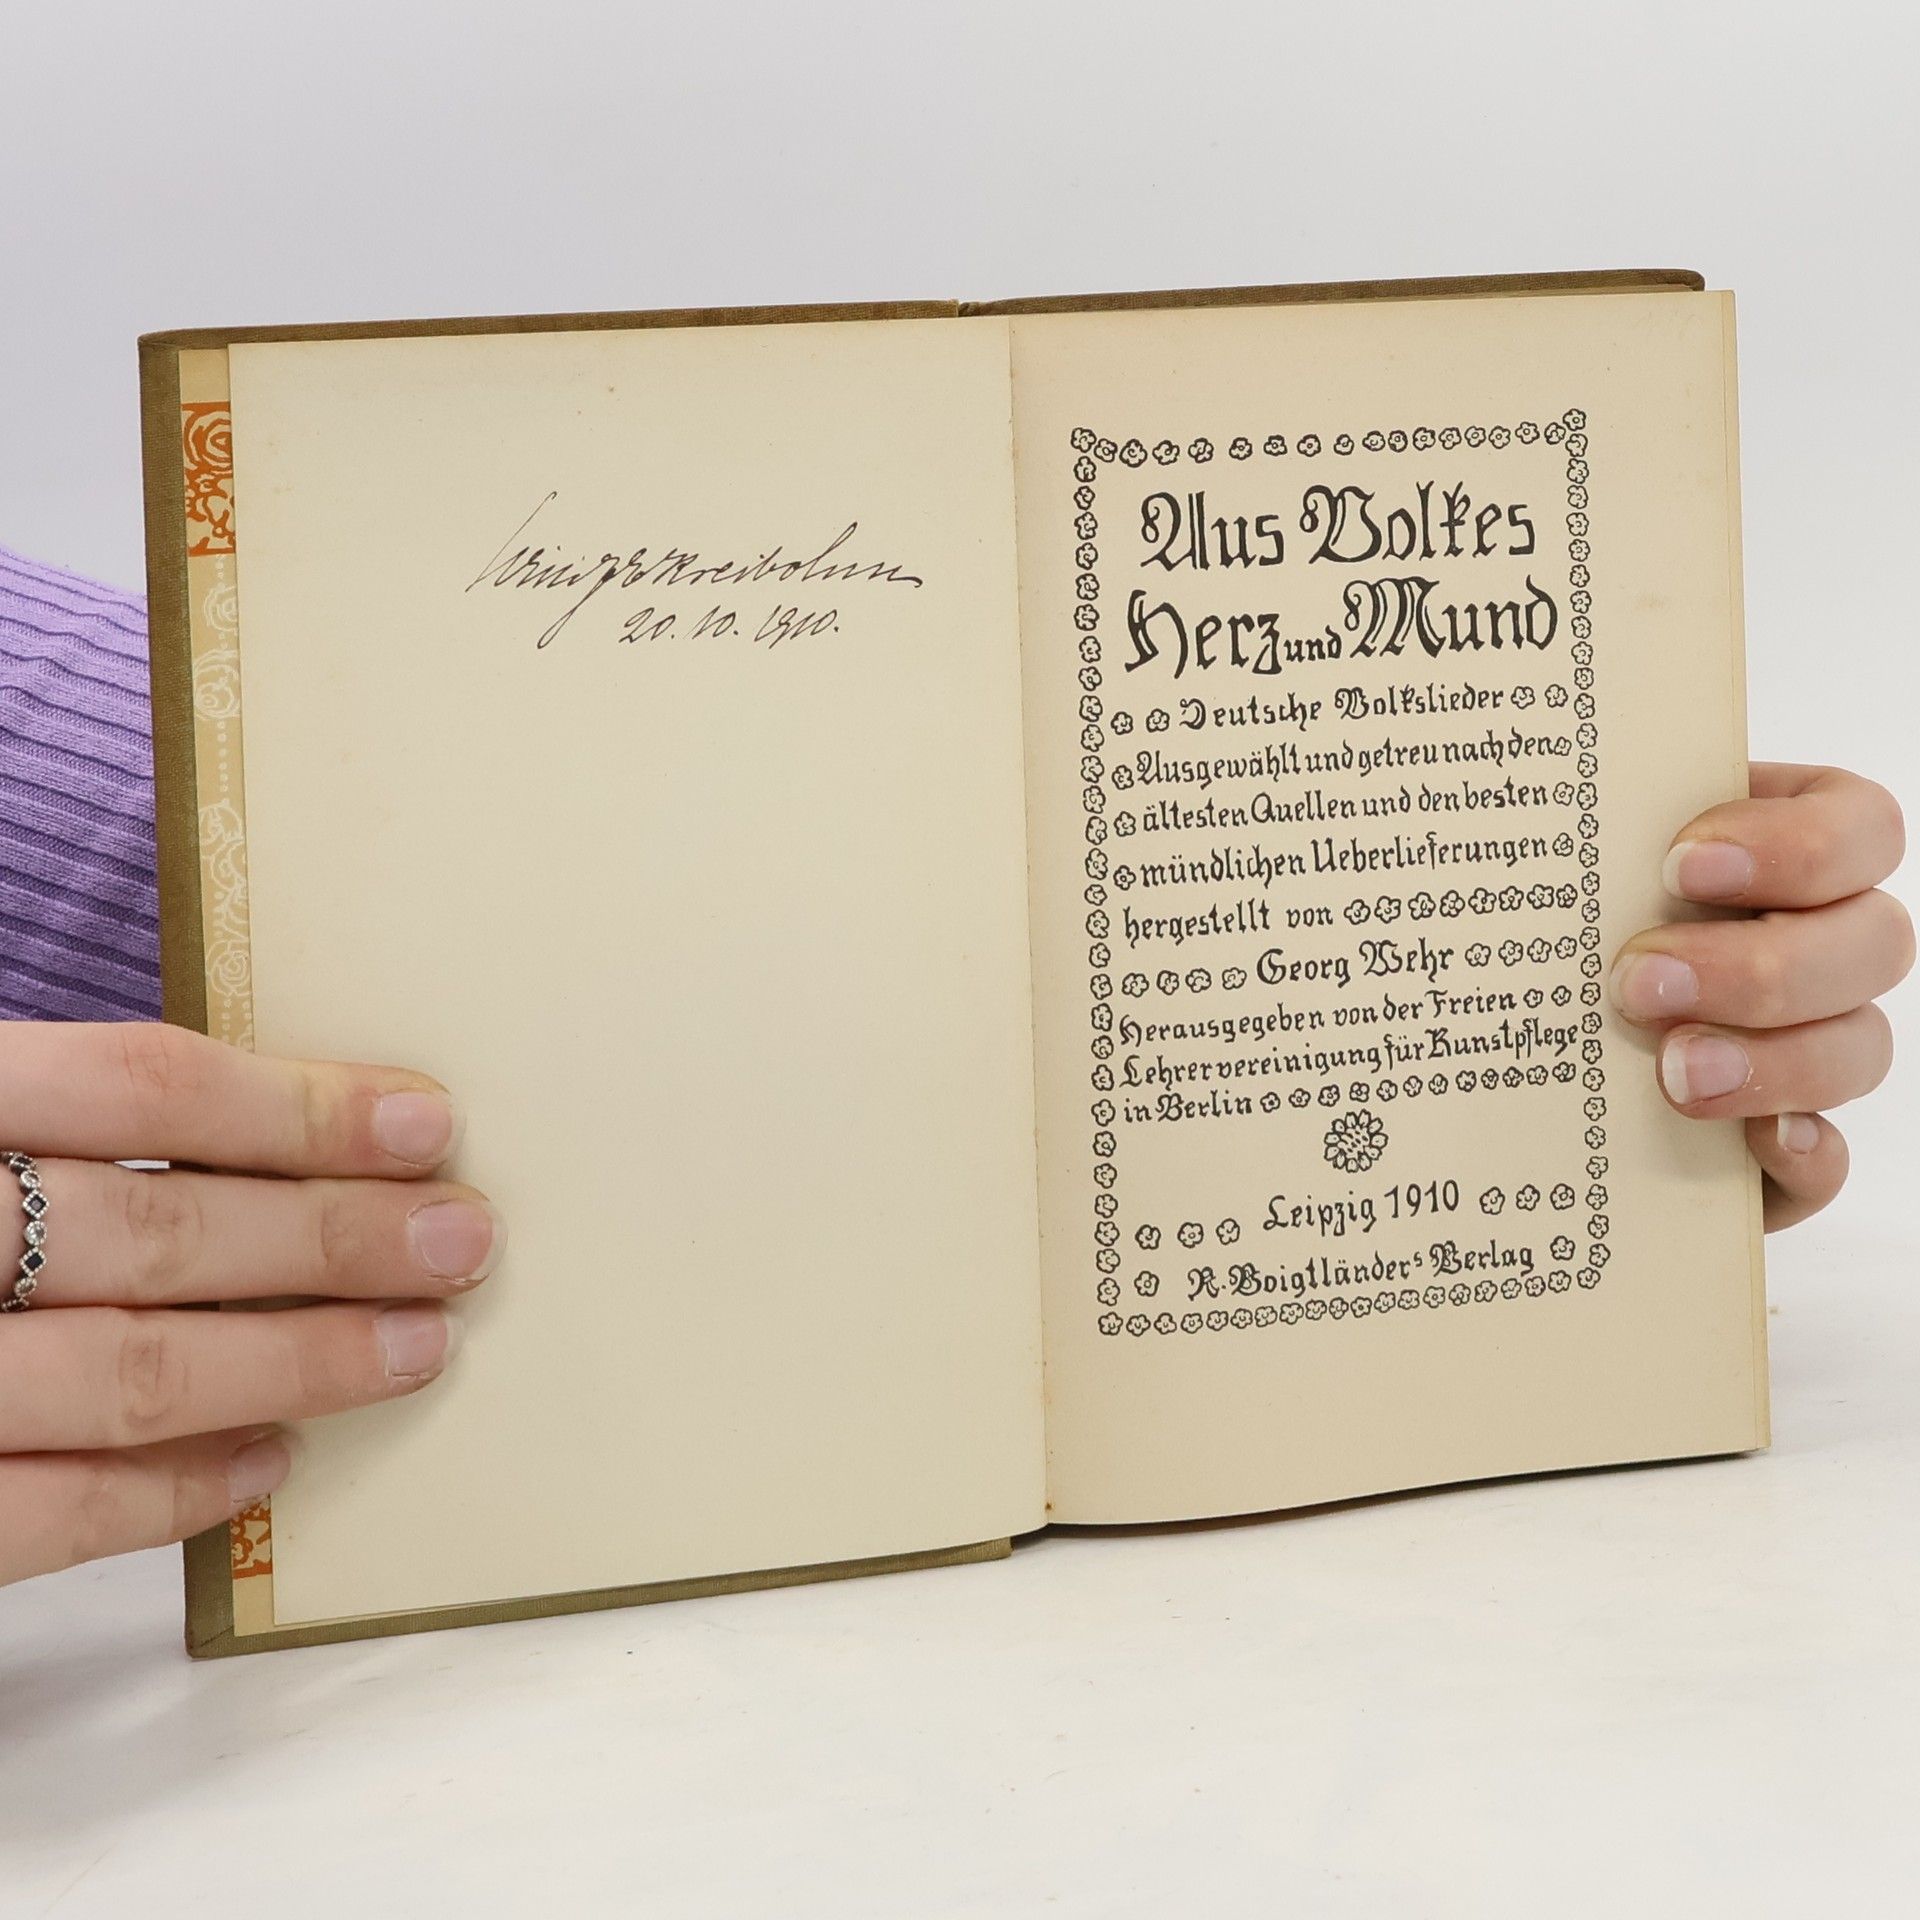 20. 10. 1910.
Aus Volkes
Herz und Mund
Deutsche Volkslieder
Ausgewählt und getreu nach den
ältesten Quellen und den besten
mündlichen Ueberlieferungen
hergestellt von
Georg Wehr
Herausgegeben von der Freien
Lehrervereinigung für Kunstpflege
in Berlin
Leipzig 1910
R. Voigtländers Verlag